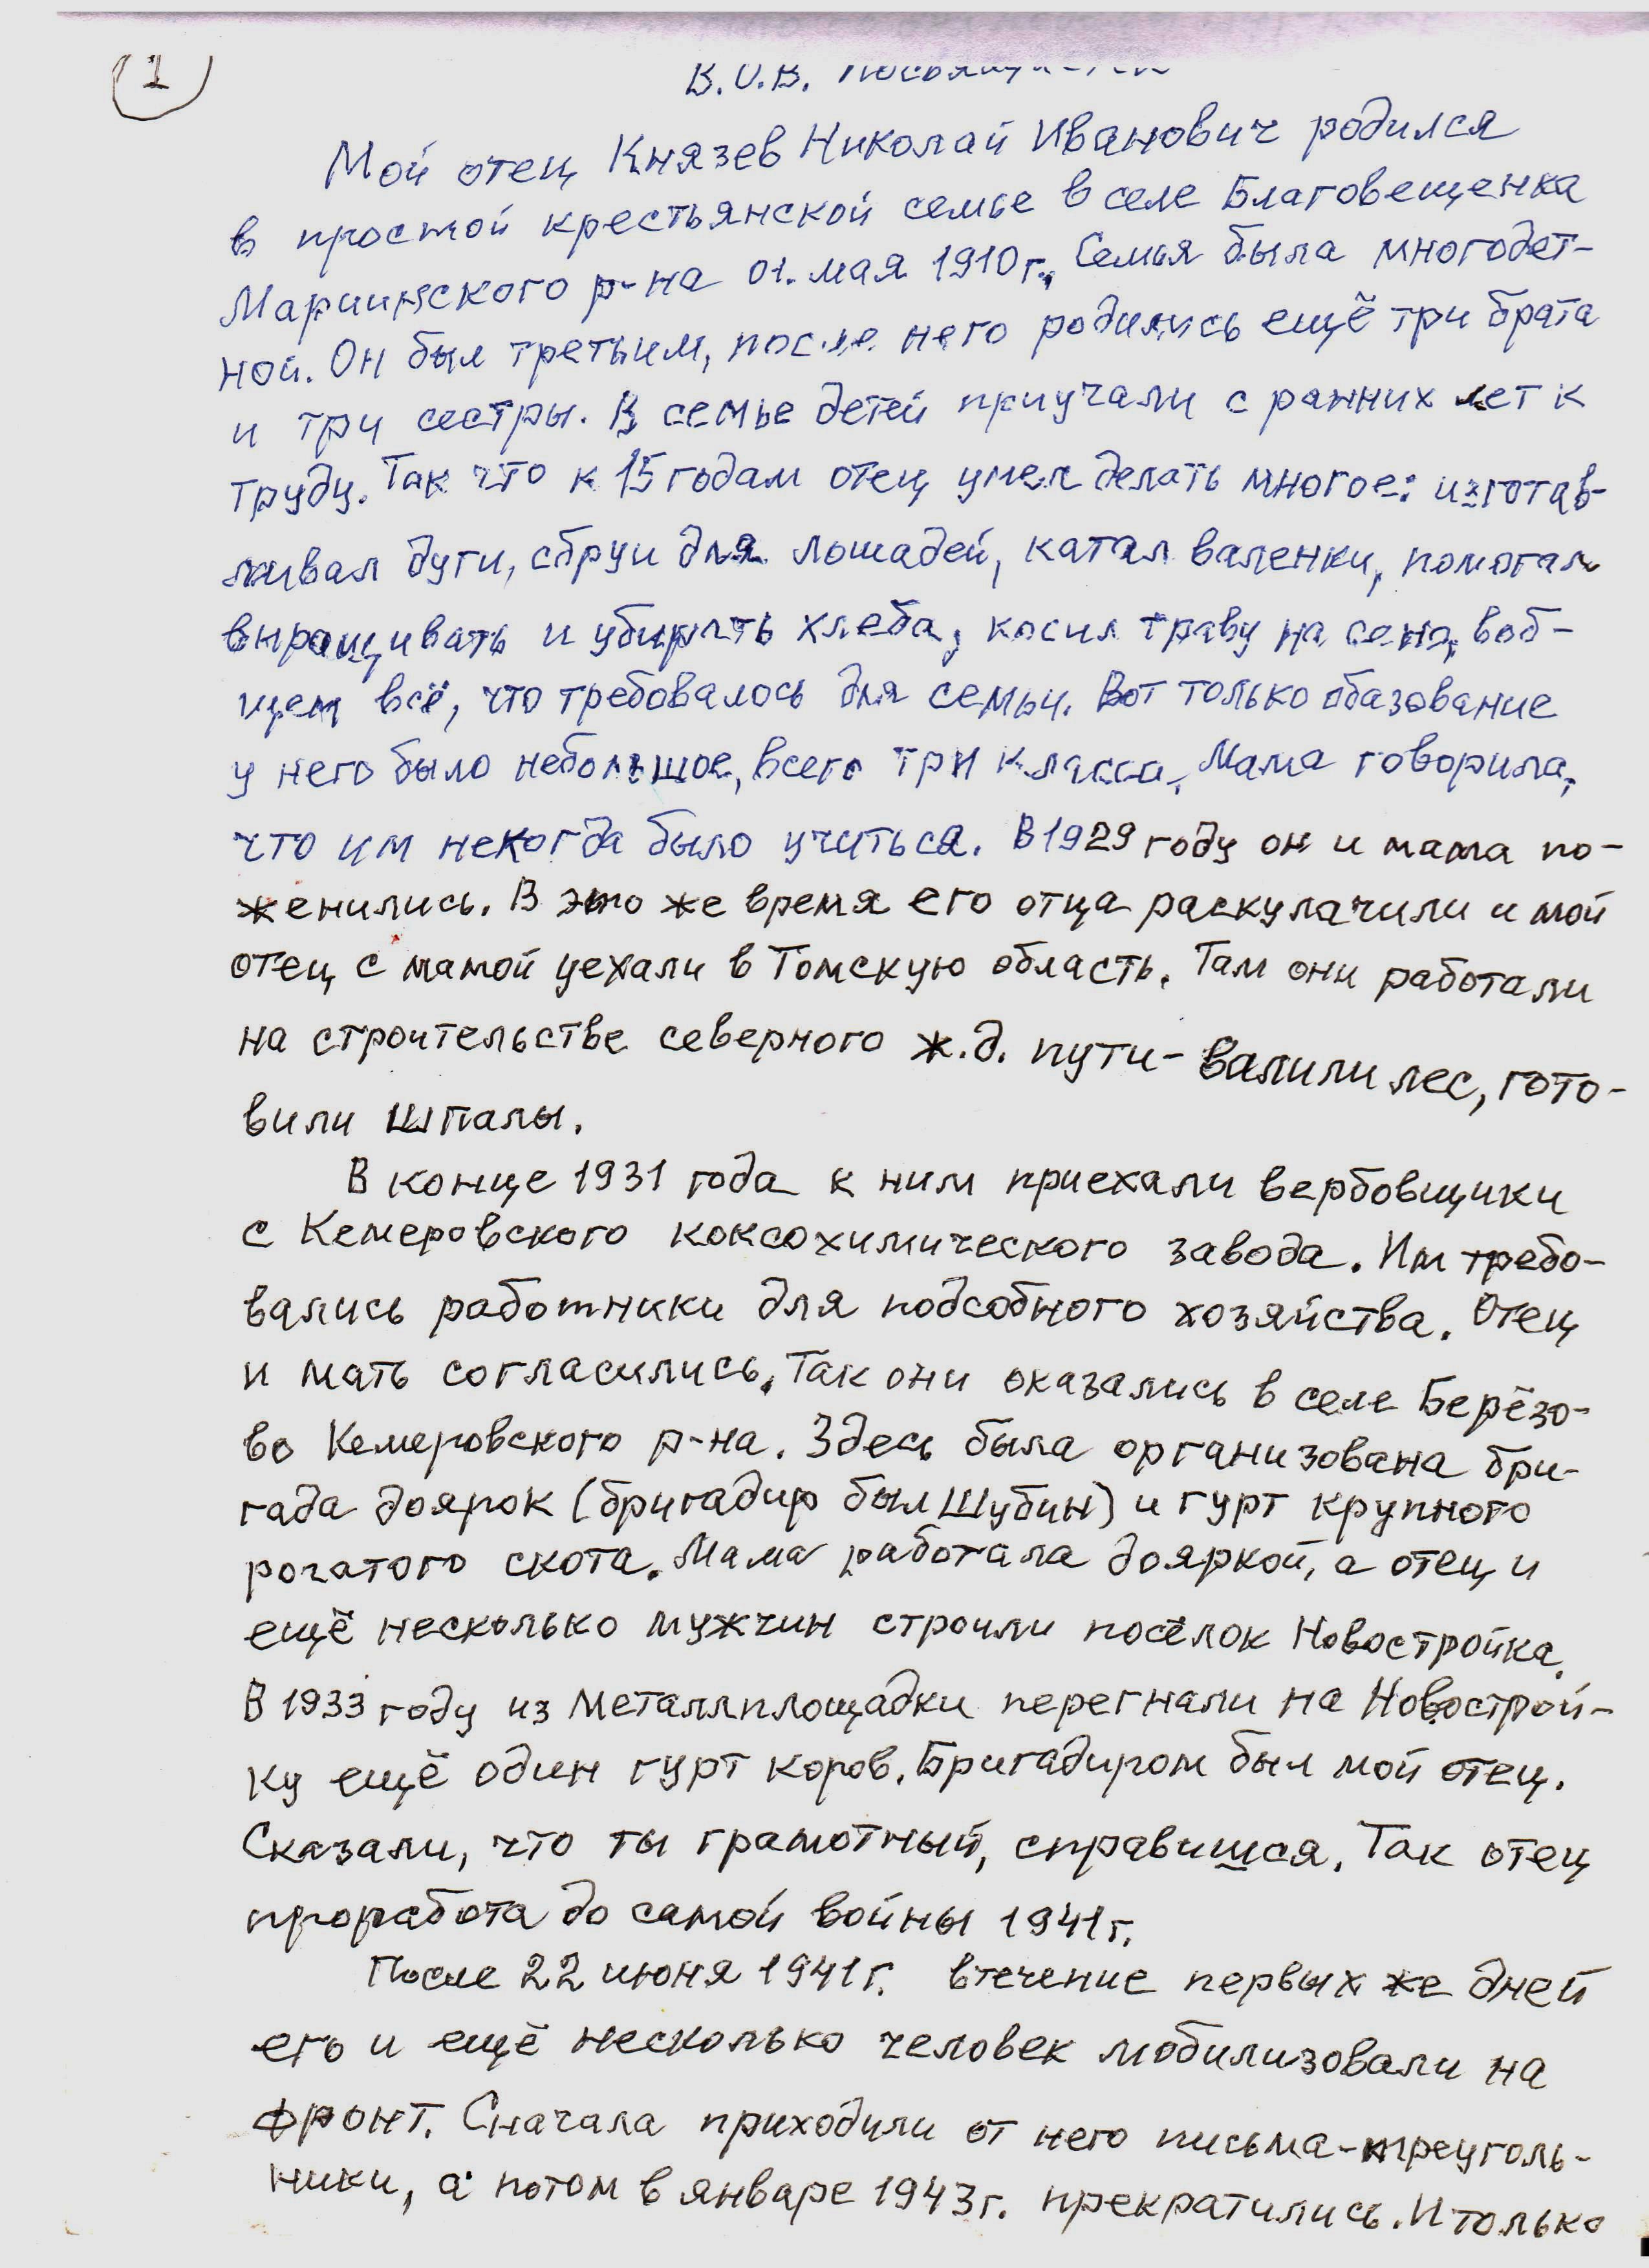 1
В.О.В.
Мой отец Князев Николай Иванович родился
в простой крестьянской семье в селе Благовещенка
Мариинского р-на 01. мая 1910г. Семья была многодет-
ной. Он был третьим, после него родились ещё три брата
и три сестры. В семье детей приучали с ранних лет к
труду. Так что к 15 годам отец умел делать многое: изготав-
ливал дуги, сбруи для лошадей, катал валенки, помогал
выращивать и убирать хлеба, косил траву на сено, воб-
щем всё, что требовалось для семьи. Вот только обазование
у него было небольшое, всего три класса. Мама говорила,
что им некогда было учиться. В 1929 году он и мама по-
женились. В это же время его отца раскулачили и мой
отец с мамой уехали в Томскую область. Там они работали
на строительстве северного ж.д. пути - валили лес, гото-
вили шпалы.
В конце 1931 года к ним приехали вербовщики
с Кемеровского коксохимического завода. Им требо-
вались работники для подсобного хозяйства. Отец
и мать согласились. Так они оказались в селе Берёзо-
во Кемеровского р-на. Здесь была организована бри-
гада доярок (бригадир был Шубин) и гурт крупного
рогатого скота. Мама работала дояркой, а отец и
ещё несколько мужчин строили посёлок Новостройка.
В 1933 году из Металлплощадки перегнали на Новострой-
ку ещё один гурт коров. Бригадиром был мой отец.
Сказали, что ты грамотный, справишся. Так отец
проработа до самой войны 1941г.
После 22 июня 1941г. втечение первых же дней
его и ещё несколько человек мобилизовали на
фронт. Сначала приходили от него письма-треуголь-
ники, а потом в январе 1943г. прекратились. И только